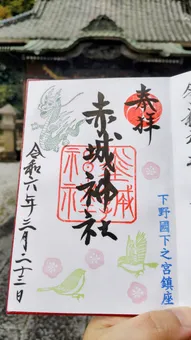 奉拝
赤城神社
下野國下之宮鎮座
令和六年三月二十三日